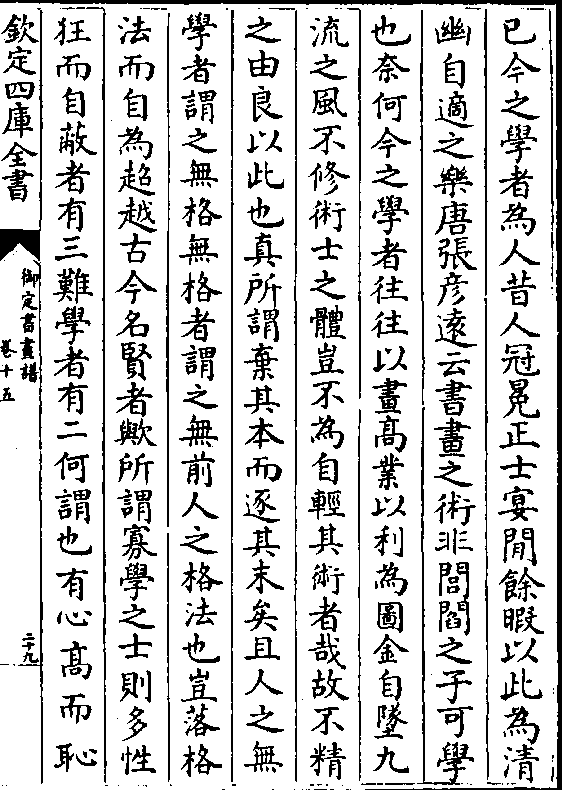 已今之學者為人昔人冠冕正士宴閒餘暇以此為清
幽自適之樂唐張彦逺云書畫之術非閭閻之子可學
也奈何今之學者往往以畫髙業以利為圖金自墜九
流之風不修術士之體豈不為自輕其術者哉故不精
之由良以此也真所謂棄其本而逐其末矣且人之無
學者謂之無格無格者謂之無前人之格法也豈落格
法而自為超越古今名賢者歟所謂寡學之士則多性
狂而自蔽者有三難學者有二何謂也有心髙而恥
欽定四庫全書
御定書畫譜
卷十五
二十九